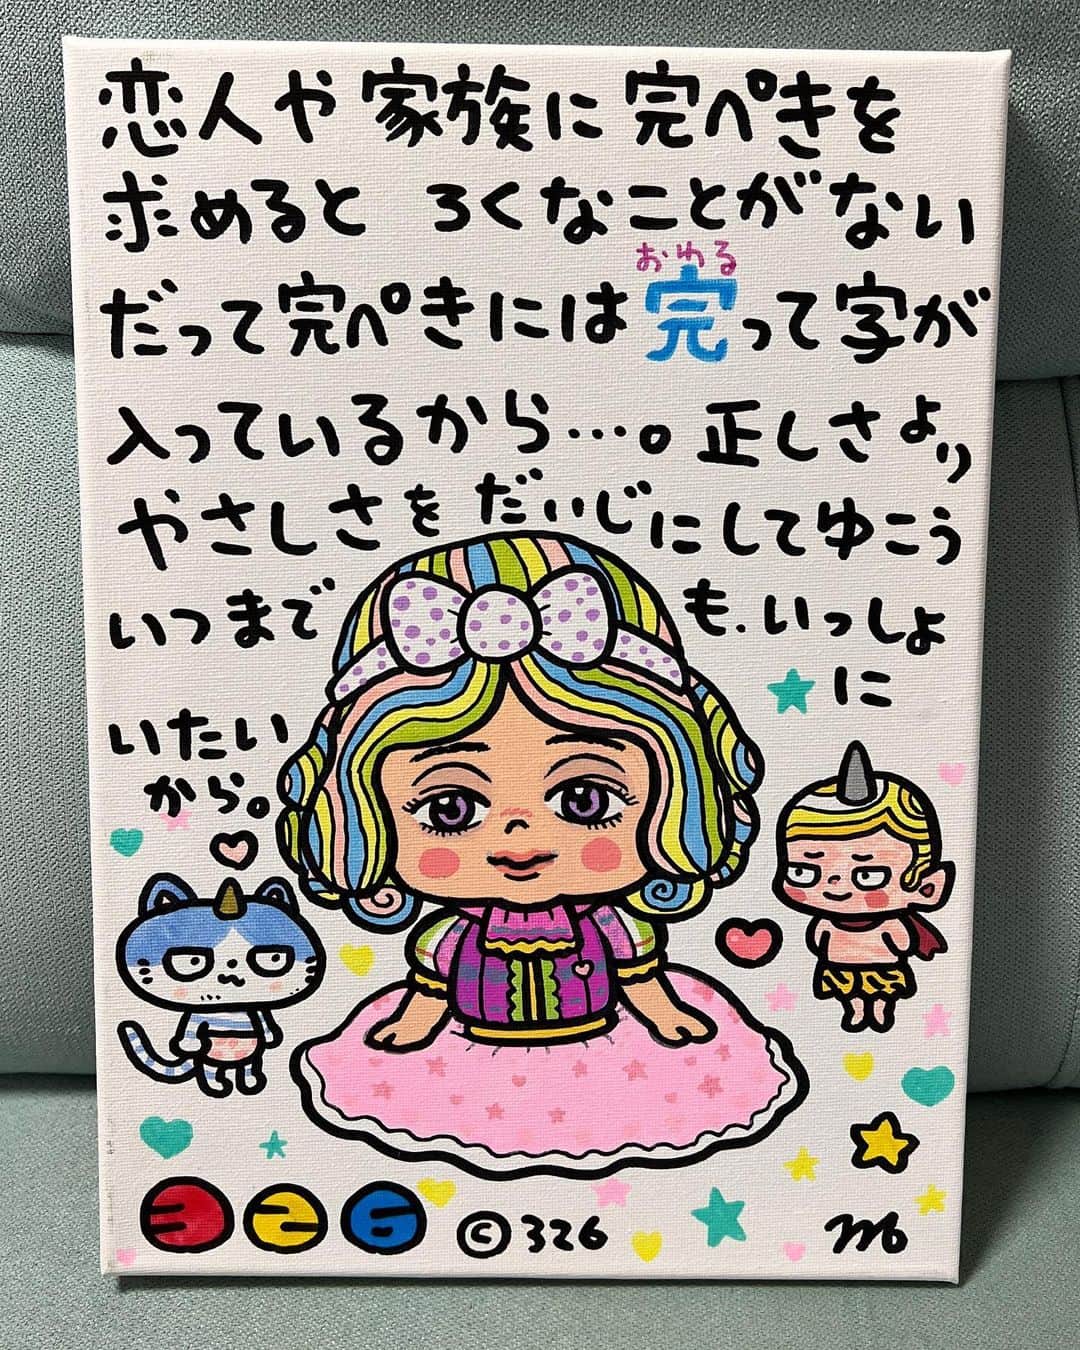 恋人や家族に完ぺきを
求めると ろくなことがない
おわる
だって完ぺきには完って字が
入っているから…。正しさより
やさしさをだいじにしてゆこう
いつまでも、いっしょ
に
いたい
から。
326
©326